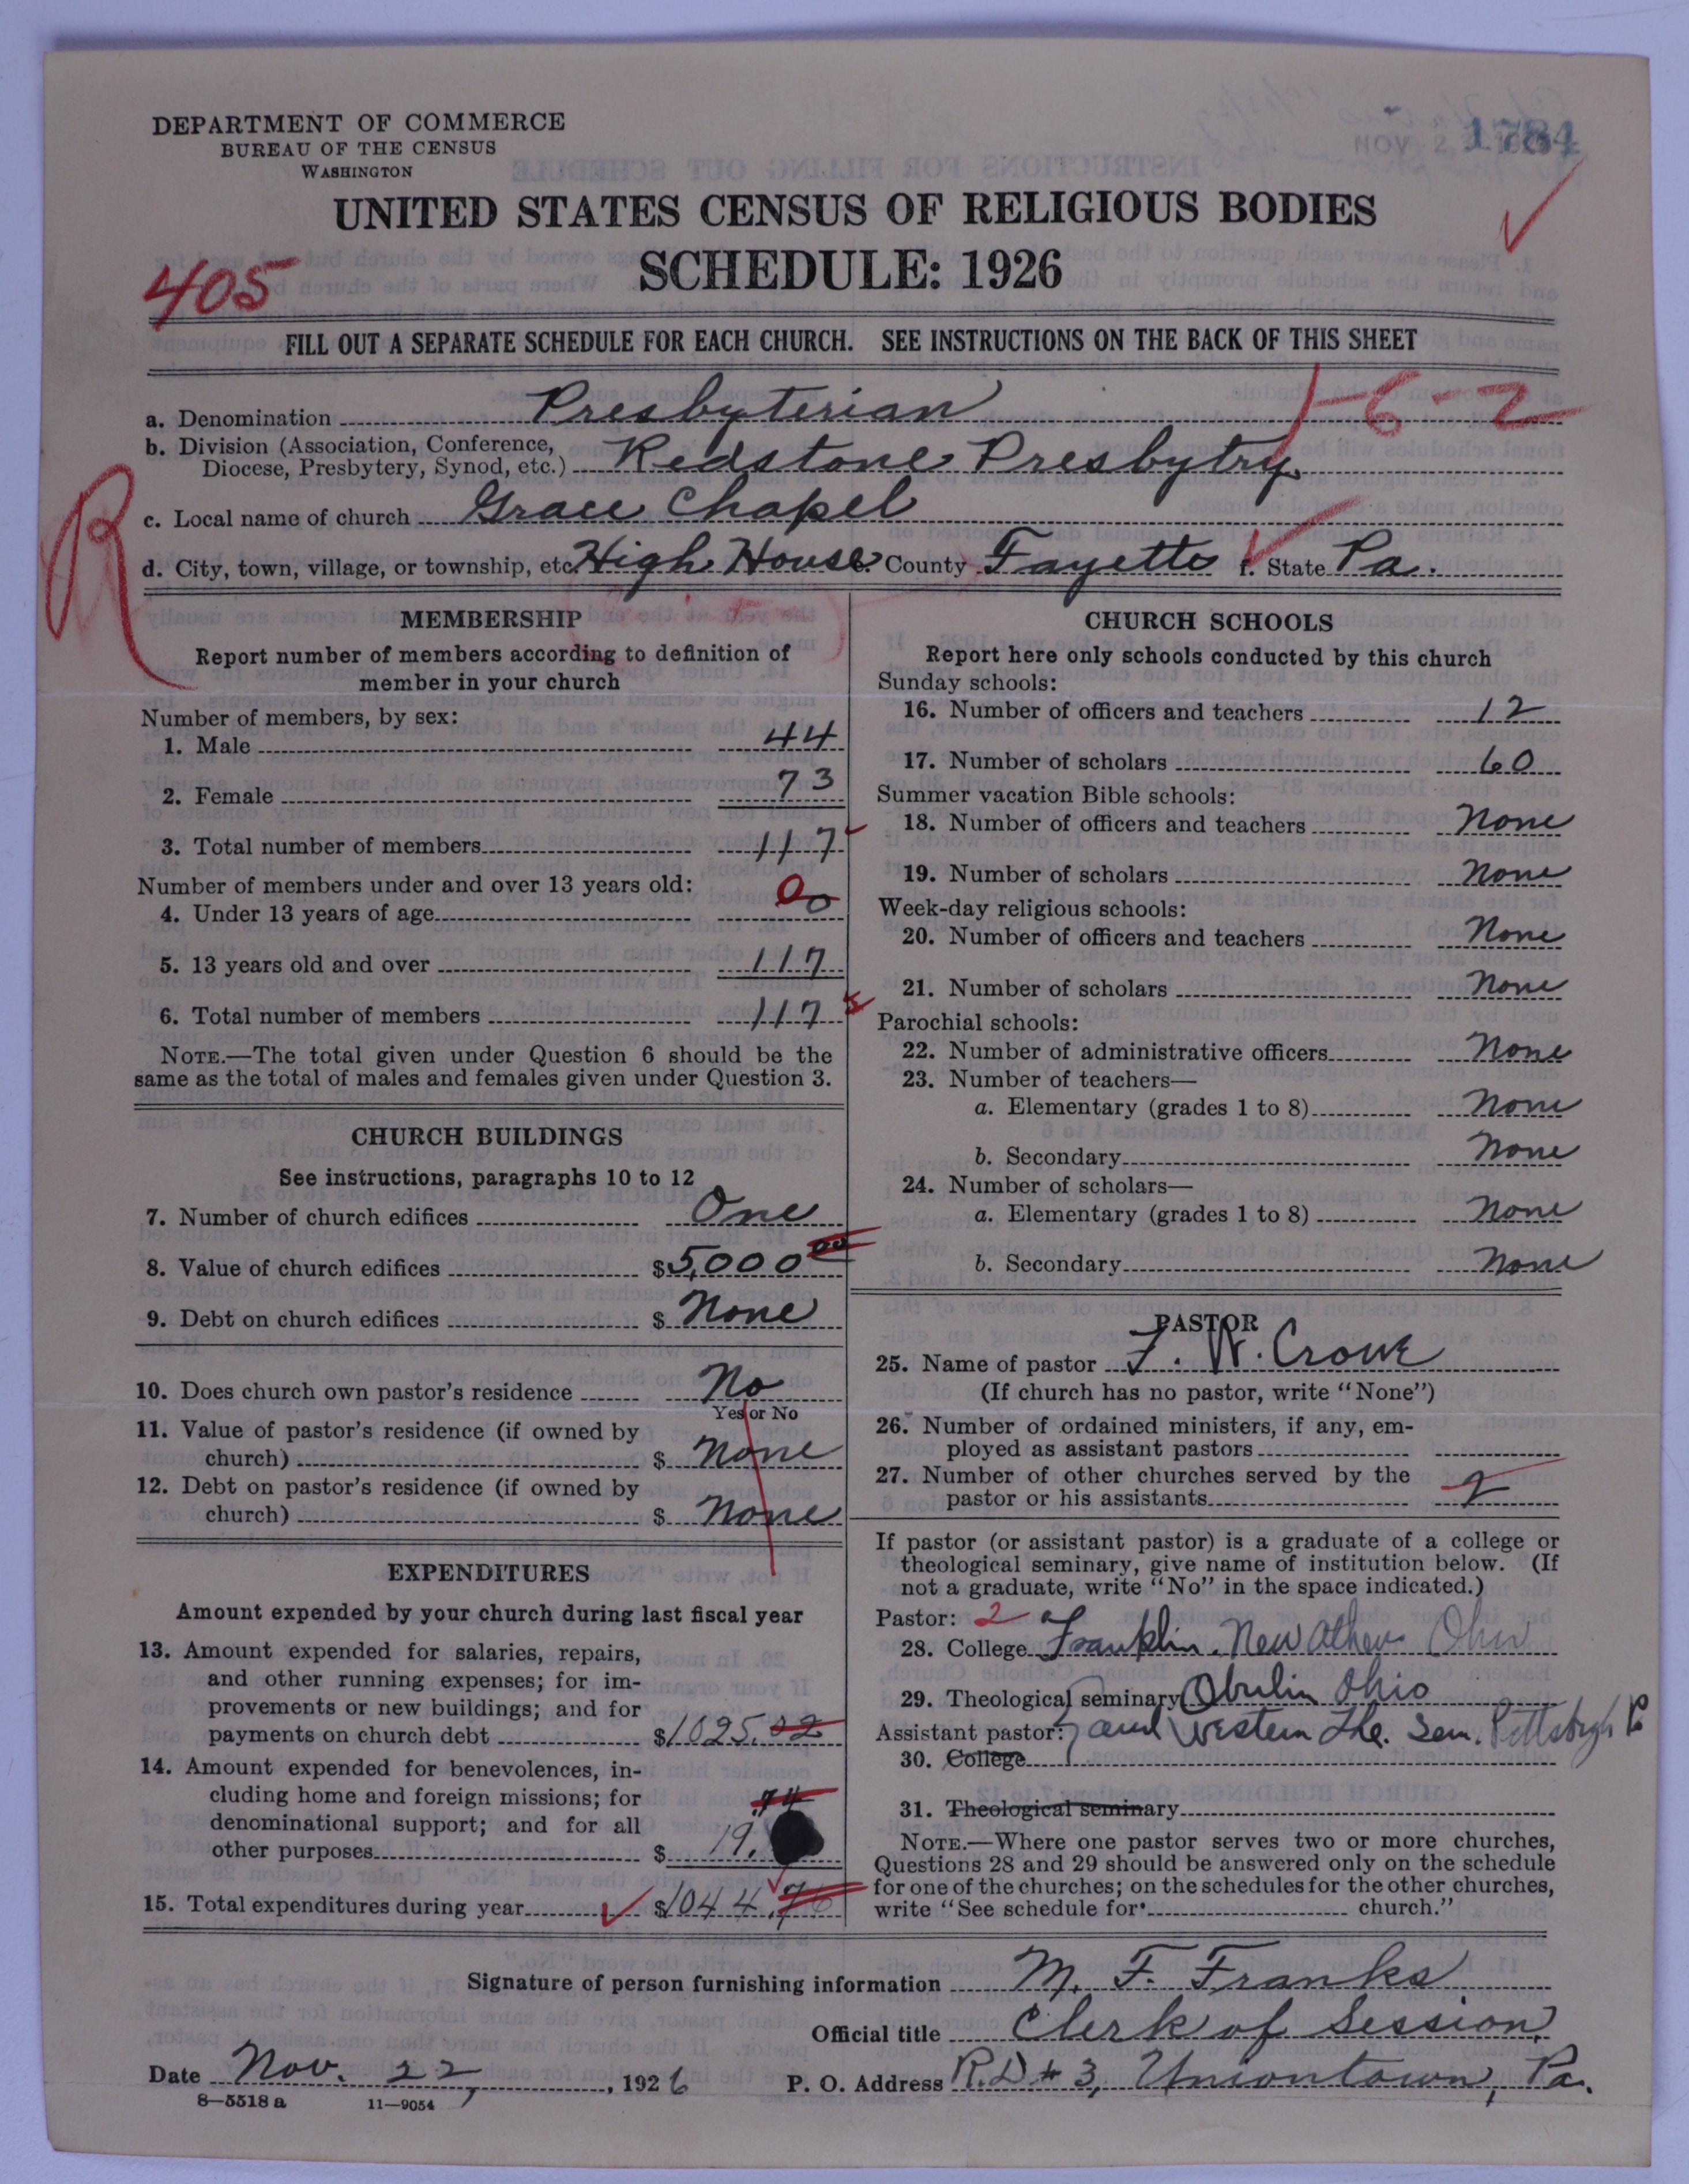 DEPARTMENT OF COMMERCE
BUREAU OF THE CENSUS
WASHINGTON
NOV 2
1784
UNITED STATES CENSUS OF RELIGIOUS BODIES
SCHEDULE: 1926
405
FILL OUT A SEPARATE SCHEDULE FOR EACH CHURCH. SEE INSTRUCTIONS ON THE BACK OF THIS SHEET
1-6-2
a. Denomination Presbyterian
b. Division (Association, Conference,
Diocese, Presbytery, Synod, etc.) Redstone Presbytry
R
c. Local name of church Grace Chapel
d. City, town, village, or township, etc. High House e. County Fayette f. State Pa.
MEMBERSHIP
Report number of members according to definition of
member in your church
Number of members, by sex:
1. Male 44
2. Female 73
3. Total number of members 117
Number of members under and over 13 years old:
4. Under 13 years of age 0 0
5. 13 years old and over 117
6. Total number of members 117
NOTE.—The total given under Question 6 should be the
same as the total of males and females given under Question 3.
CHURCH BUILDINGS
See instructions, paragraphs 10 to 12
7. Number of church edifices One
8. Value of church edifices $5,000 00
9. Debt on church edifices $ None
10. Does church own pastor's residence No
Yes or No
11. Value of pastor's residence (if owned by
church) $ None
12. Debt on pastor's residence (if owned by
church) $ None
EXPENDITURES
Amount expended by your church during last fiscal year
13. Amount expended for salaries, repairs,
and other running expenses; for im-
provements or new buildings; and for
payments on church debt $1025.02
14. Amount expended for benevolences, in-
cluding home and foreign missions; for
denominational support; and for all
other purposes $ 19.74
15. Total expenditures during year $1044.76
CHURCH SCHOOLS
Report here only schools conducted by this church
Sunday schools:
16. Number of officers and teachers 12
17. Number of scholars 60
Summer vacation Bible schools:
18. Number of officers and teachers None
19. Number of scholars None
Week-day religious schools:
20. Number of officers and teachers None
21. Number of scholars None
Parochial schools:
22. Number of administrative officers None
23. Number of teachers—
a. Elementary (grades 1 to 8) None
b. Secondary None
24. Number of scholars—
a. Elementary (grades 1 to 8) None
b. Secondary None
PASTOR
25. Name of pastor F. W. Crowe
(If church has no pastor, write "None")
26. Number of ordained ministers, if any, em-
ployed as assistant pastors
27. Number of other churches served by the
pastor or his assistants 2
If pastor (or assistant pastor) is a graduate of a college or
theological seminary, give name of institution below. (If
not a graduate, write "No" in the space indicated.)
Pastor: 2
28. College Franklin. New Athens Ohio
29. Theological seminary Oberlin Ohio
Assistant pastor: and Western The. Sem. Pittsburgh
30. College
31. Theological seminary
NOTE.—Where one pastor serves two or more churches,
Questions 28 and 29 should be answered only on the schedule
for one of the churches; on the schedules for the other churches,
write "See schedule for church."
Signature of person furnishing information M. F. Franks
Official title Clerk of Session
Date Nov. 22, 1926 P. O. Address R.D # 3, Uniontown, Pa.
8—5518 a 11—9054